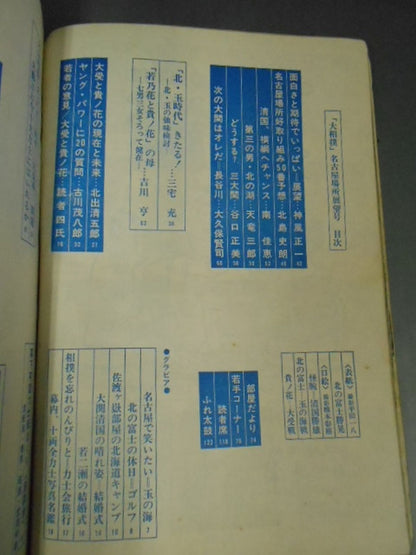 「大相撲」名古屋場所展望号 目次
面白さと期待でいっぱい=展望…神風正一 42
名古屋場所好取り組み50番予想…北島史朗 49
清国、横綱へチャンス…南佳恵 52
第三の男・北の湖…天竜三郎
どうする?三大関…谷口正美 58
次の大関はオレだ…長谷川…大久保賢司 60
「北・玉時代」きたる!…三宅充 36
―北・玉の強味検討―
「若乃花と貴ノ花」の母…吉川亨 62
―七男三女そろって健在―
大受と貴ノ花の現在と未来…北出清五郎 31
ヤング・パワーに20の質問…古川茂八郎 32
若者の意見・大受と貴ノ花…読者四氏 16
〈表絵〉
北の富士勝昭
〈口絵〉
怪腕、清国勝雄
北の富士、玉の海戦
貴ノ花、大受戦
部屋だより 74
若手コーナー 70
読者席 118
ふれ太鼓 122
●グラビア●
名古屋で笑いたい=玉の海 7
北の富士の休日=ゴルフ 8
佐渡ヶ嶽部屋の北海道キャンプ 10
大関清国の晴れ姿=結婚式
若二瀬の結婚式
相撲を忘れのんびりと=力士会旅行
幕内、十両全力士写真名鑑